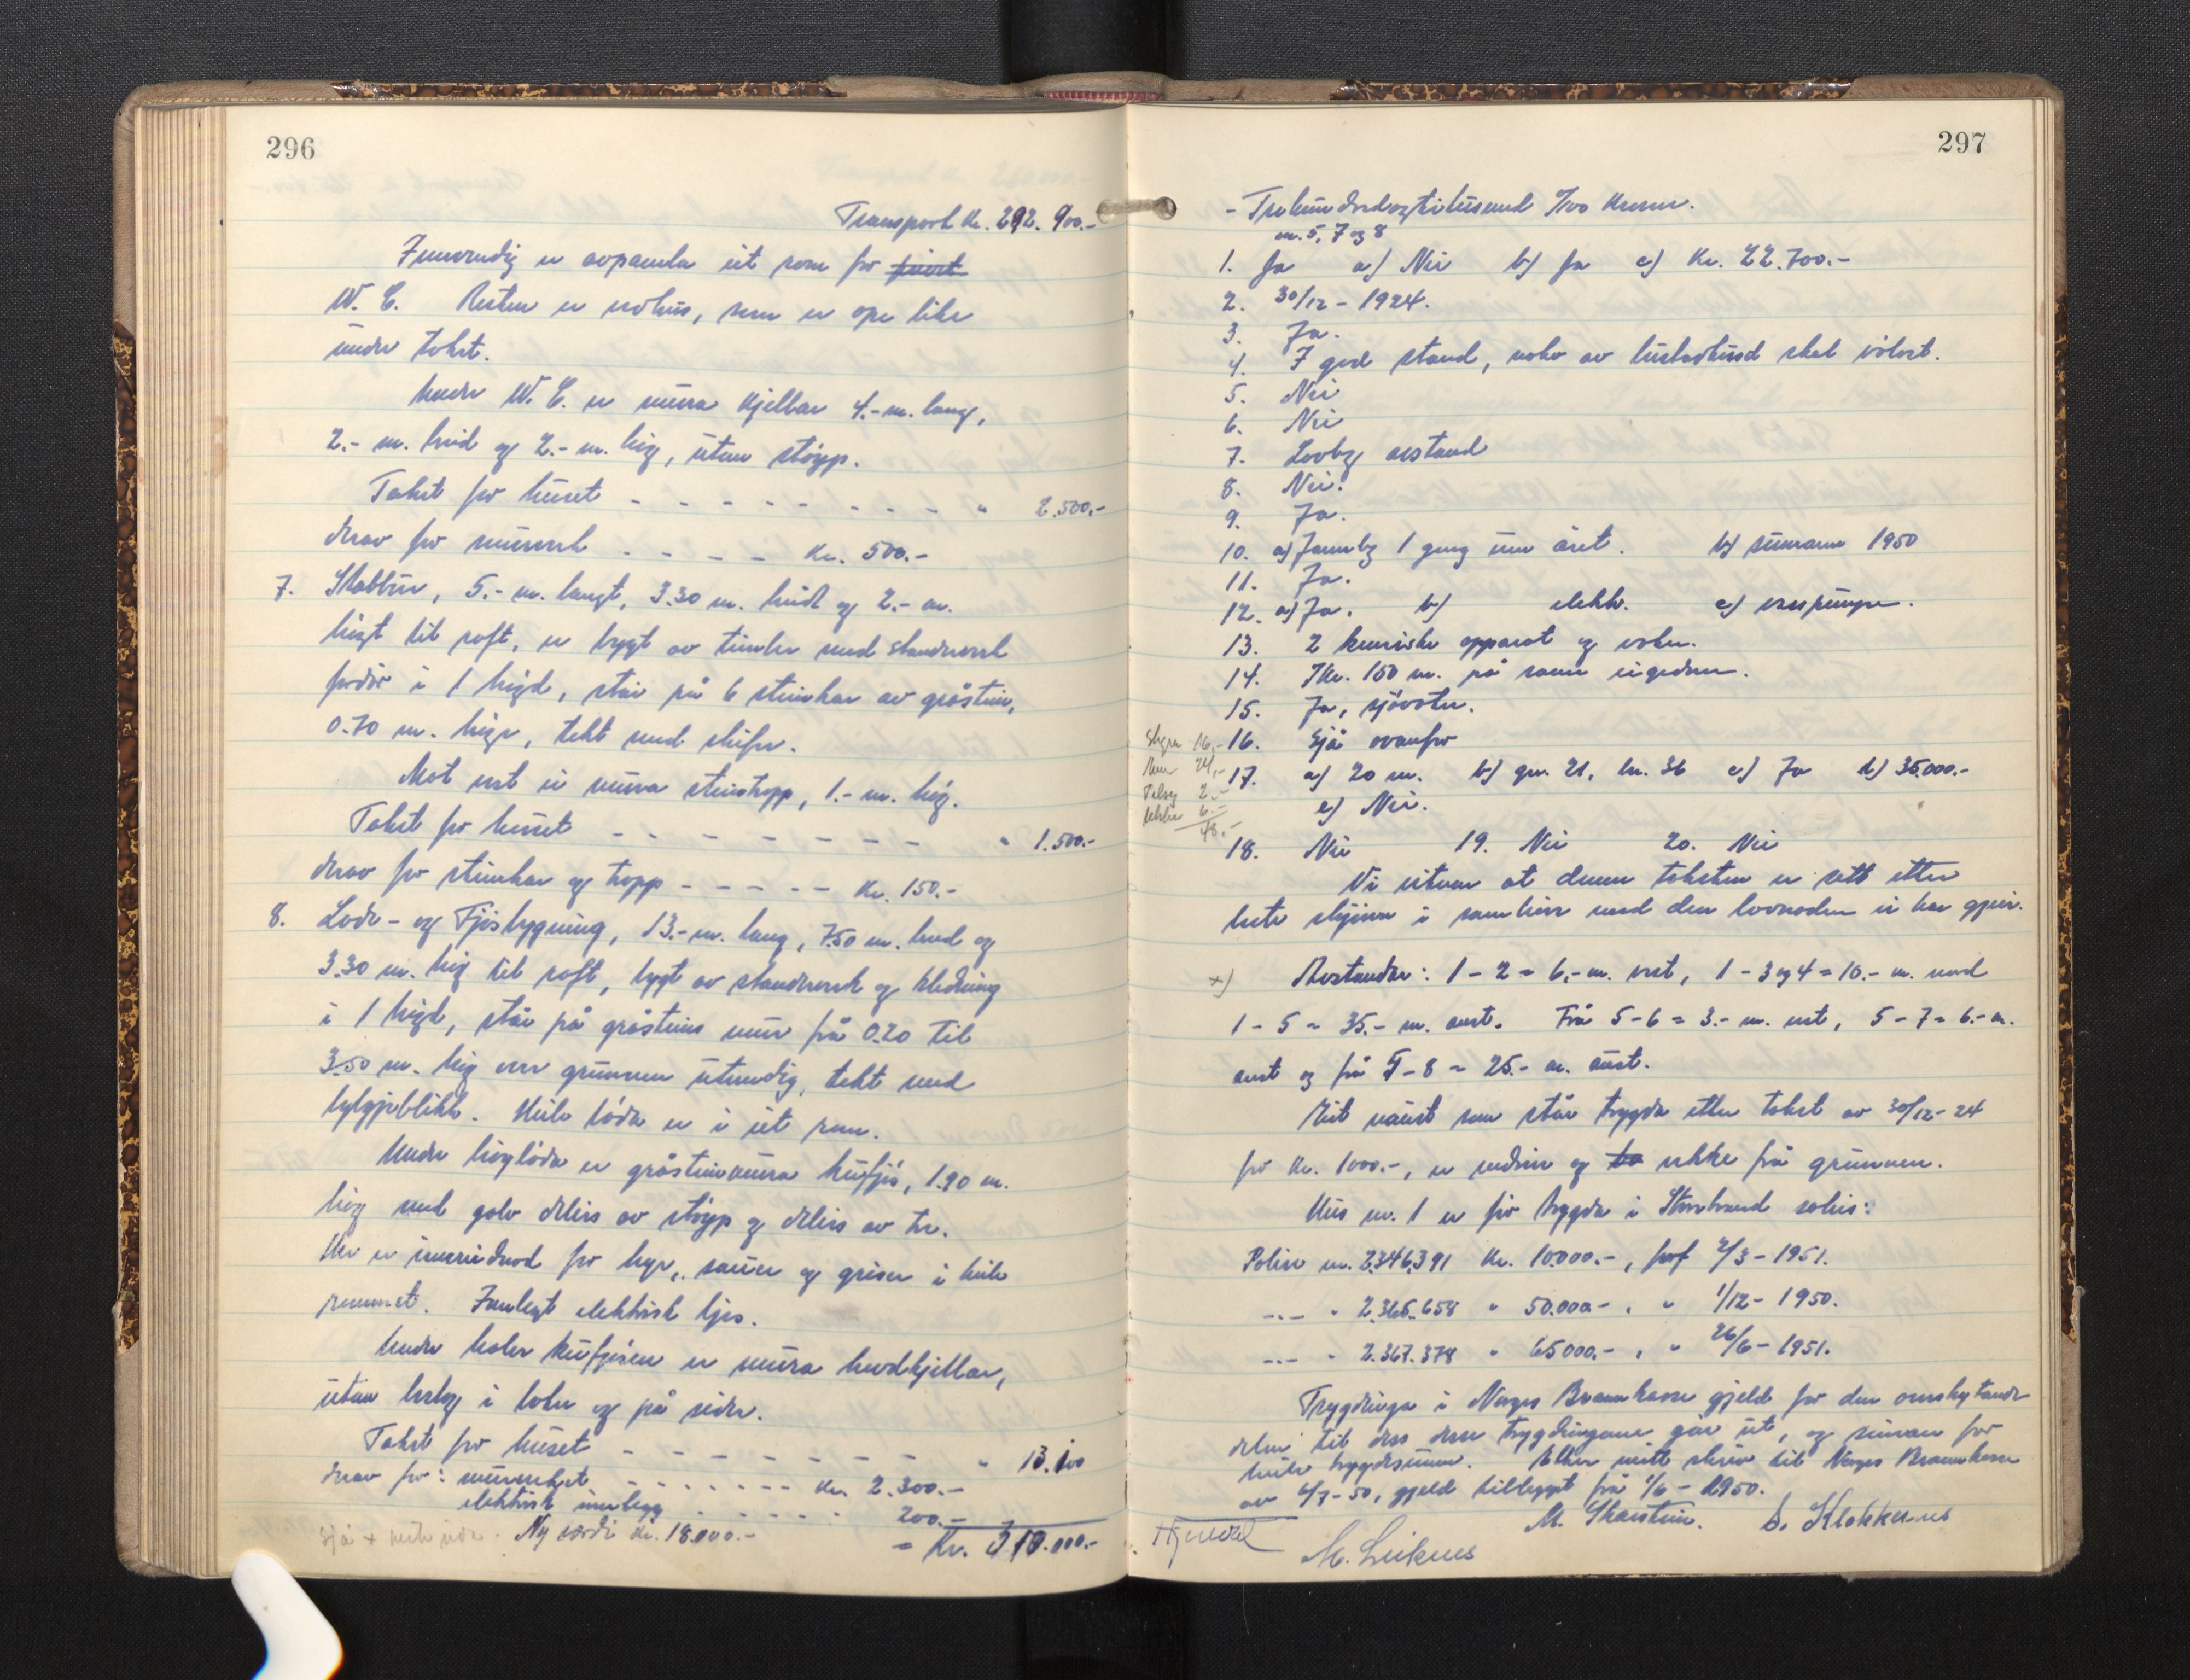 296
Transport kr. 292.900.-
Innvendig er avpanela eit rom for
W. C. Resten er vedhus, som er ope like
under taket.
Under W. C. er mura kjellar 4.- m. lang,
2.- m. breid og 2.- m. høg, utan støyp.
Takst for huset - - - - - - - - - " 2.500.-
Herav for murverk - - - - kr. 500.-
7. Stabbur, 5.- m. langt, 3.30 m. breidt og 2.- m.
høgt til raft, er bygt av timber med standverk
i 1 høgd, står på 6 steinkar av gråstein,
0.70 m. høge, tekt med skifer.
Mot vest ei mura steintropp, 1.- m. høg.
Takst for huset - - - - - - - - " 1.500.-
Herav for steinkar og tropp - - - - - kr. 150.-
8. Løde- og Fjøsbygning, 13.- m. lang, 7.50 m. breid og
3.30 m. høg til raft, bygt av standverk og kledning
i 1 høgd, står på gråsteins mur frå 0.20 til
3.50 m. høg over grunnen utvendig, tekt med
bylgjeblikk. Heile løda er i eit rom.
Under høyløda er gråsteinmura kufjøs, 1.90 m.
høg med golv delvis av støyp og delvis av tre.
Her er innreidnad for kyr, sauer og griser i heile
rommet. Innlagt elektrisk ljos.
Under halve kufjøsen er mura hevdkjellar,
utan belegg i botn og på sider.
Takst for huset - - - - - - - " 13.100
Herav for: murverket - - - - - - kr. 2.300.-
elektrisk innlegg . . . . . . 200.-
Sjå x neste side. Ny verdi kr. 18.000.- = Kr. 310.000.-
297
- Trehundredogtitusend 0/100 kroner.
nr. 5, 7 og 8
1. Ja a) Nei b) Ja c) Kr. 22.700.-
2. 30/12 - 1924.
3. Ja.
4. I god stand, noko av bustadhusd skal
5. Nei
6. Nei
7. Lovleg avstand
8. Nei.
9. Ja.
10. a) Jamnleg 1 gong um året. b) sumaren 1950
11. Ja.
12. a) Ja. b) elektr. c) vasspumpe.
13. 2 kemiske apparat og vatn.
14. Ikr. 150 m. på same eigedom.
15. Ja, sjøvatn.
16. Sjå ovanfor
17. a) 20 m. b) gnr. 21, bnr. 36 c) Ja d) 35.000.-
e) Nei.
Skyss 16,-
24,-
2.-
6.-
48.-
18. Nei 19. Nei 20. Nei
Vi vitnar at denne taksten er sett etter
beste skjønn i samhøve med den lovnaden vi har gjeve.
x) Avstandar: 1 - 2 = 6,- m. vest, 1 - 3 og 4 = 10.- m. nord
1 - 5 = 35.- m. aust. Frå 5 - 6 = 3.- m. vest, 5 - 7 = 6.- m.
aust og frå 5 - 8 = 25.- m. aust.
Eit naust som står trygda etter takst av 30/12 - 24
for kr. 1000.-, er nedrive og vekke frå grunnen.
Hus nr. 1 er før trygda i Storebrand soleis:
Polise nr. 2.346.391 kr. 10.000.-, forf 2/3 - 1951.
-.- " 2.365.658 " 50.000.-, " 1/12 - 1950.
-.- " 2.367.378 " 65000.-, " 26/6 - 1951.
Trygdinga i Norges Brannkasse gjeld for den overskytande
delen til dess desse trygdingane går ut, og seinare for
heile trygdesumen. Etter mitt skriv til Norges Brannkasse
av 6/7 - 50, gjeld tillegget frå 1/6 - 1950.
M. Skarstein. S. Klokkernes
M. Leiknes